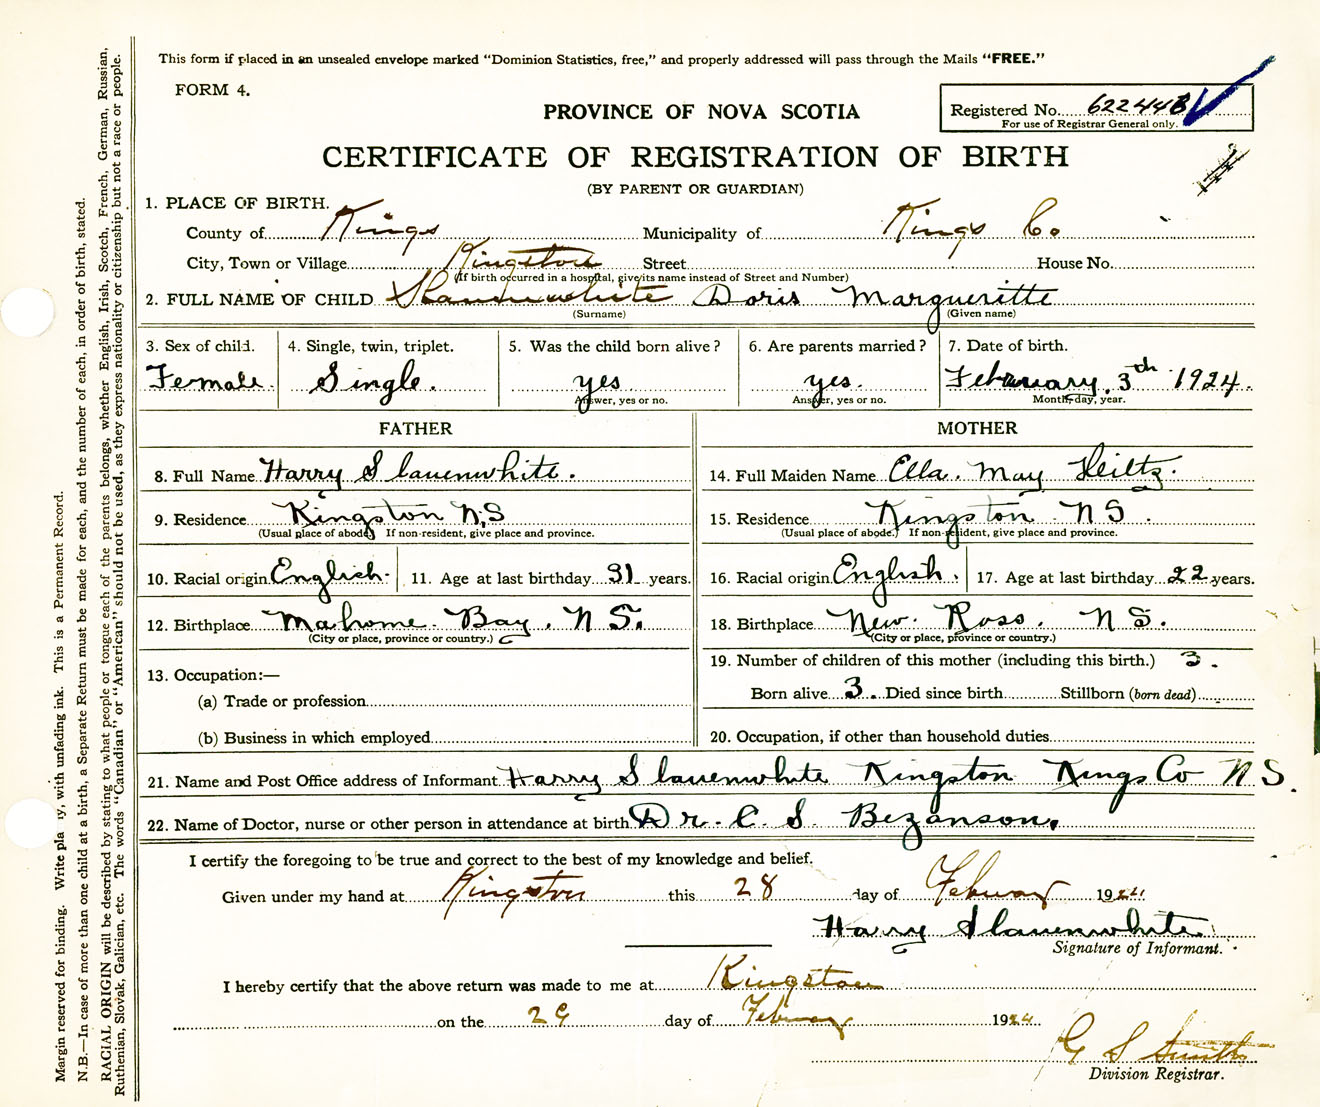 This form if placed in an unsealed envelope marked "Dominion Statistics, free," and properly addressed will pass through the Mails "FREE."
FORM 4.
PROVINCE OF NOVA SCOTIA
Registered No. 62244B
For use of Registrar General only.
CERTIFICATE OF REGISTRATION OF BIRTH
(BY PARENT OR GUARDIAN)
1. PLACE OF BIRTH.
County of Kings Municipality of Kings Co
City, Town or Village Kingston Street House No.
(If birth occurred in a hospital, give its name instead of Street and Number)
2. FULL NAME OF CHILD Slauenwhite Doris Margueritte
(Surname) (Given name)
3. Sex of child. 4. Single, twin, triplet. 5. Was the child born alive? 6. Are parents married? 7. Date of birth.
Female. Single. yes yes. February. 3th 1924.
Answer, yes or no. Answer, yes or no. Month, day, year.
FATHER MOTHER
8. Full Name Harry Slauenwhite. 14. Full Maiden Name Ella. May Heiltz.
9. Residence Kingston N.S 15. Residence Kingston NS.
(Usual place of abode) If non-resident, give place and province. (Usual place of abode.) If non-resident, give place and province.
10. Racial origin English. 11. Age at last birthday 31 years. 16. Racial origin English. 17. Age at last birthday 22 years.
12. Birthplace Mahome Bay. N S. 18. Birthplace New. Ross. N S.
(City or place, province or country.) (City or place, province or country.)
13. Occupation:— 19. Number of children of this mother (including this birth.) 3.
(a) Trade or profession Born alive 3. Died since birth Stillborn (born dead)
(b) Business in which employed 20. Occupation, if other than household duties
21. Name and Post Office address of Informant Harry Slauenwhite Kingston Kings Co N S.
22. Name of Doctor, nurse or other person in attendance at birth Dr. C. S Bezanson.
I certify the foregoing to be true and correct to the best of my knowledge and belief.
Given under my hand at Kingston this 28 day of February 1924
Harry Slauenwhite
Signature of Informant.
I hereby certify that the above return was made to me at Kingston
on the 29 day of February 1924
G S Smith
Division Registrar.
Margin reserved for binding. Write plainly, with unfading ink. This is a Permanent Record.
N.B.—In case of more than one child at a birth, a Separate Return must be made for each, and the number of each, in order of birth, stated.
RACIAL ORIGIN will be described by stating to what people or tongue each of the parents belongs, whether English, Irish, Scotch, French, German, Russian,
Ruthenian, Slovak, Galician, etc. The words "Canadian" or "American" should not be used, as they express nationality or citizenship but not a race or people.